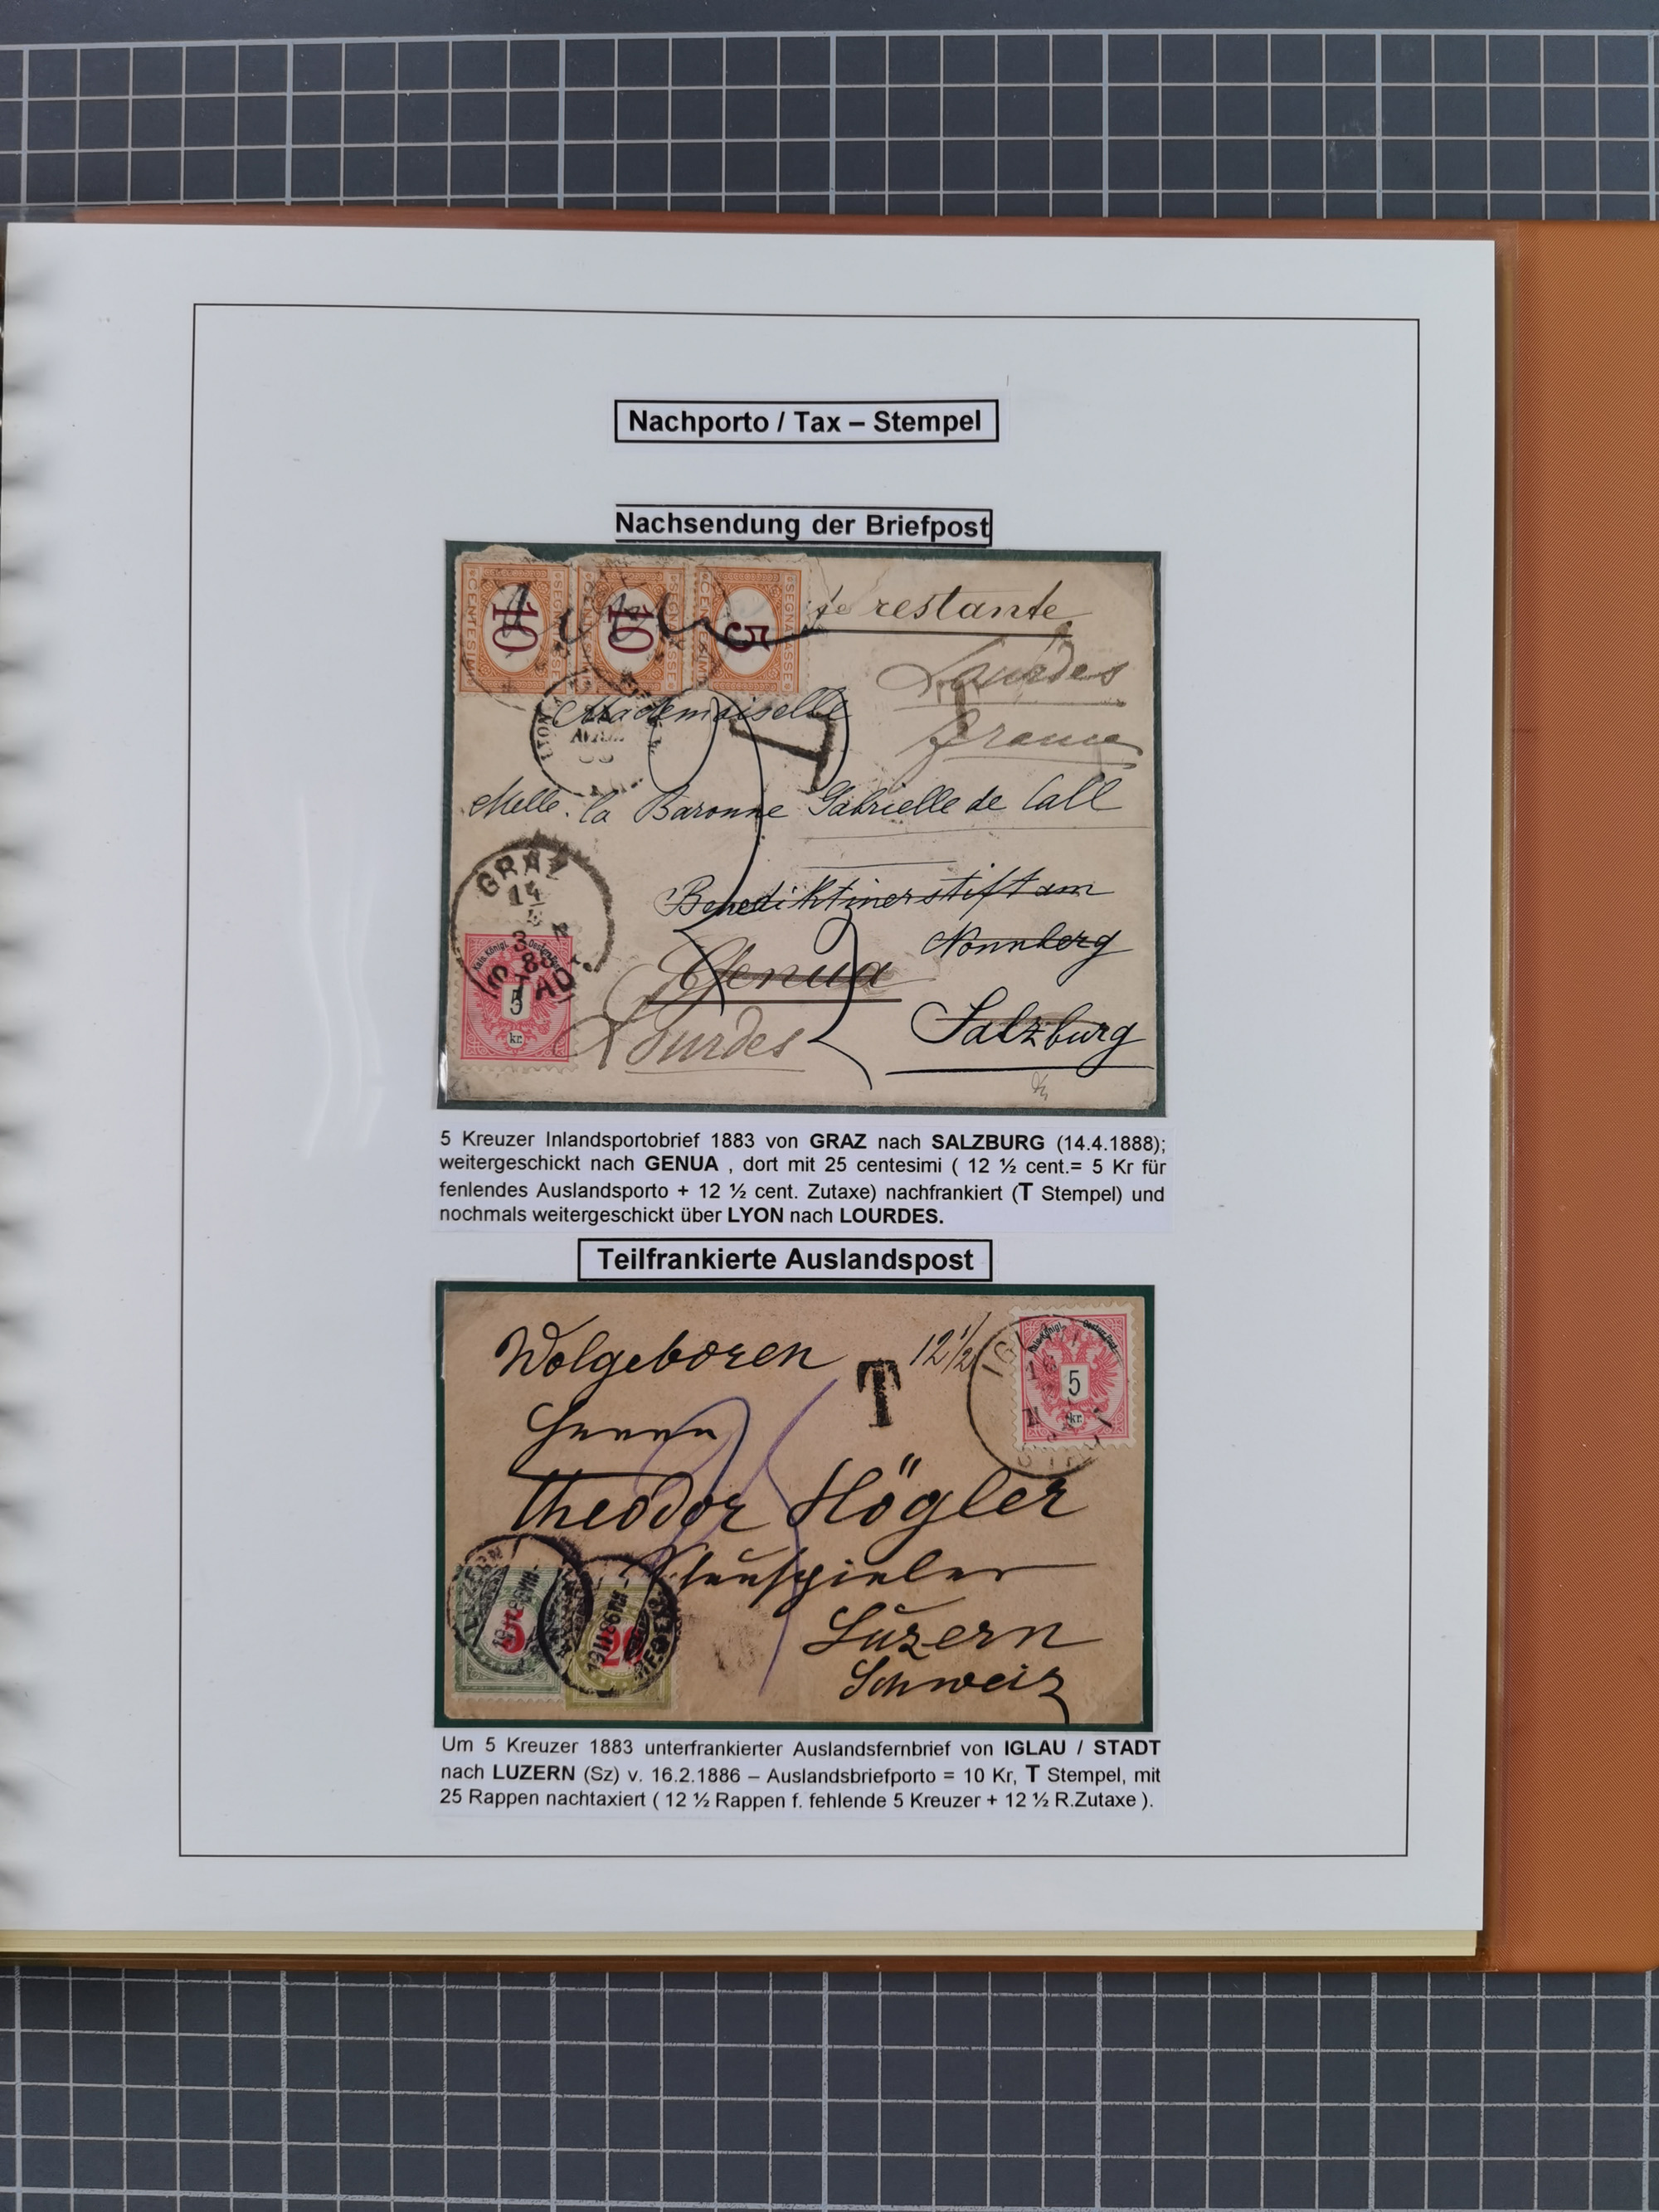 Nachporto / Tax – Stempel
Nachsendung der Briefpost
CENTESIMI 10 SEGNATASSE
10 SEGNATASSE
CENTESIMI 5 SEGNATASSE
restante
Lourdes
France
Mademoiselle
T
LYON
Melle. la Baronne Gabrielle de Call
GRAZ
14
4
3
88
STADT
5
kr.
Benediktinerstift am
Nonnberg
Genua
Salzburg
Lourdes
5 Kreuzer Inlandsportobrief 1883 von GRAZ nach SALZBURG (14.4.1888);
weitergeschickt nach GENUA , dort mit 25 centesimi ( 12 ½ cent.= 5 Kr für
fenlendes Auslandsporto + 12 ½ cent. Zutaxe) nachfrankiert (T Stempel) und
nochmals weitergeschickt über LYON nach LOURDES.
Teilfrankierte Auslandspost
Wolgeboren
T
12 1/2
5
kr.
Herrn
25
Theodor Högler
Schauspieler
Luzern
Schweiz
5
20
Um 5 Kreuzer 1883 unterfrankierter Auslandsfernbrief von IGLAU / STADT
nach LUZERN (Sz) v. 16.2.1886 – Auslandsbriefporto = 10 Kr, T Stempel, mit
25 Rappen nachtaxiert ( 12 ½ Rappen f. fehlende 5 Kreuzer + 12 ½ R.Zutaxe ).